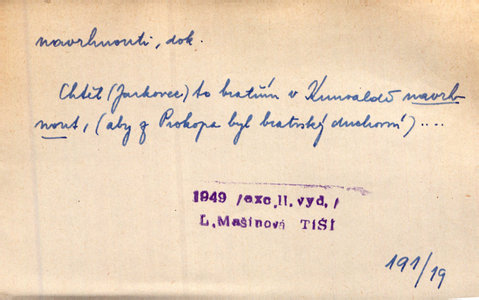 navrhnouti, dok.
Chtěl (Jarkovec) to bratřím v Kunvaldě navrh-
nout, (aby z Prokopa byl bratrský duchovní) ....
1949 /exc, II. vyd, /
L, Mašínová TIŠÍ
191/19